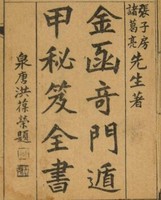 張子房
諸葛亮
先生著
金函奇門遁
甲秘笈全書
泉唐洪葆榮題